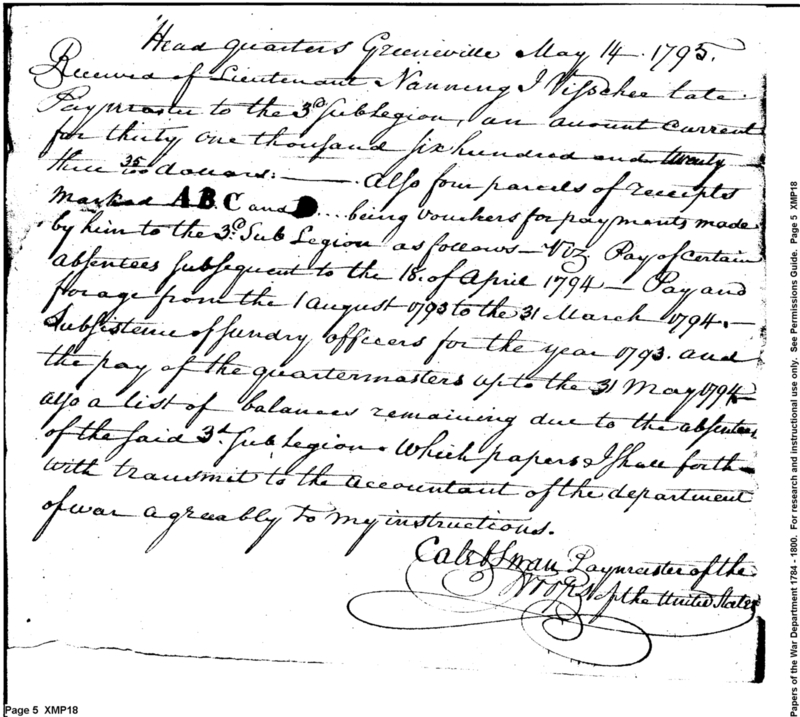 Head quarters Greeneville May 14. 1795.
Received of Lieutenant Nanning J Visscher late
Paymaster to the 3d Sub Legion, an account current
for thirty one thousand six hundred and twenty
three 35/100 dollars:—— . Also four parcels of receipts
marked A B C and D .... being vouchers for payments made
by him to the 3d. Sub Legion as follows — Viz. Pay of certain
absentees subsequent to the 18. of April 1794 — Pay and
forage from the 1 August 1793 to the 31 March 1794. —
Subsistence of sundry officers for the year 1793. and
the pay of the quartermasters up to the 31 May 1794
also a list of balances remaining due to the absentees
of the said 3d. Sub Legion. Which papers I shall forth-
with transmit to the accountant of the department
of war agreably to my instructions.
Caleb Swan Paymaster of the
troops of the United States
Page 5 XMP18
Papers of the War Department 1784 - 1800. For research and instructional use only. See Permissions Guide. Page 5 XMP18